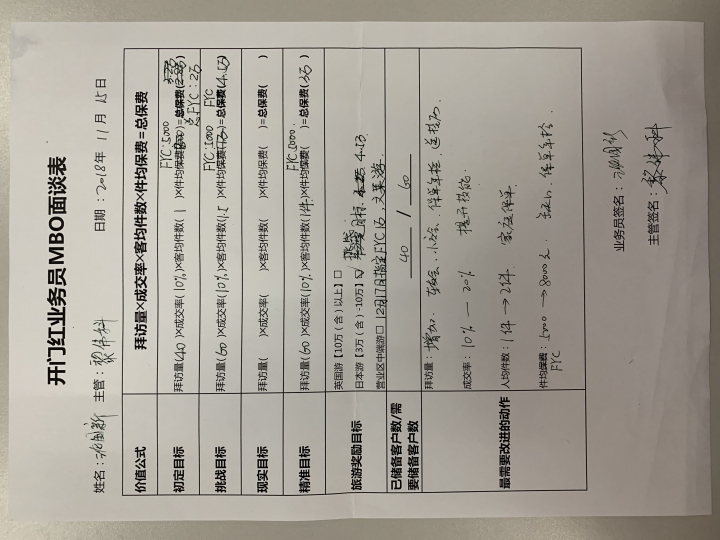 开门红业务员MBO面谈表
姓名： 主管： 日期：2018年11月15日
价值公式 拜访量×成交率×客均件数×件均保费=总保费
FYC:5000
初定目标 拜访量(40)×成交率(10%)×客均件数(1)×件均保费( )=总保费( )
FYC:2万
FYC:5000 FYC
挑战目标 拜访量(60)×成交率(10%)×客均件数(1.5)×件均保费( )=总保费(4.5万)
现实目标 拜访量( )×成交率( )×客均件数( )×件均保费( )=总保费( )
FYC 5000
精准目标 拜访量(60)×成交率(10%)×客均件数(1件)×件均保费( )=总保费(3万)
旅游奖励目标 英国游【10万（含）以上】□
日本游【3万（含）-10万】☑ 目标 4.5万
营业区中端游□ 12月17日指定FYC 文莱游
已储备客户数/需要储备客户数 40 / 60
最需要改进的动作 拜访量：增加 保单年检
成交率：10% — 20% 提升技能
人均件数：1件→2件 家庭保单
件均保费：5000→8000元 保单年检
FYC
业务员签名：
主管签名：